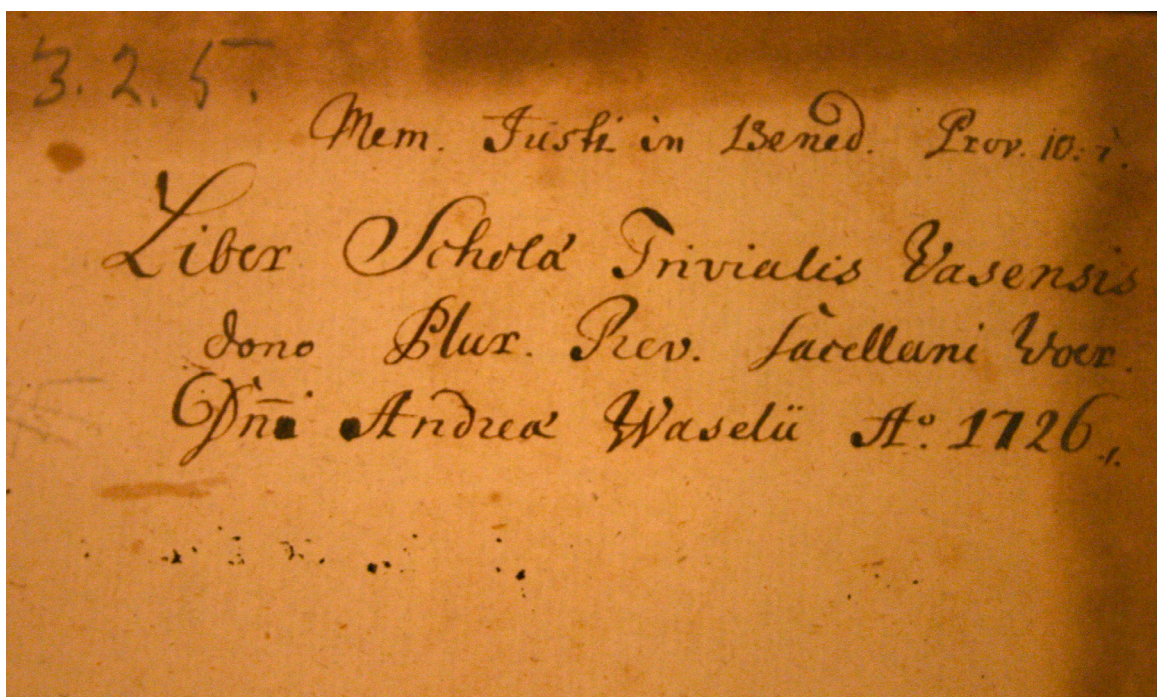 3.2.5.
Mem. Justi in Bened. Prov. 10:
Liber Scholæ Trivialis Vasensis
dono Plur. Rev. Sacellani Woer.
Dn̄i Andreæ Waselii Aº 1726.